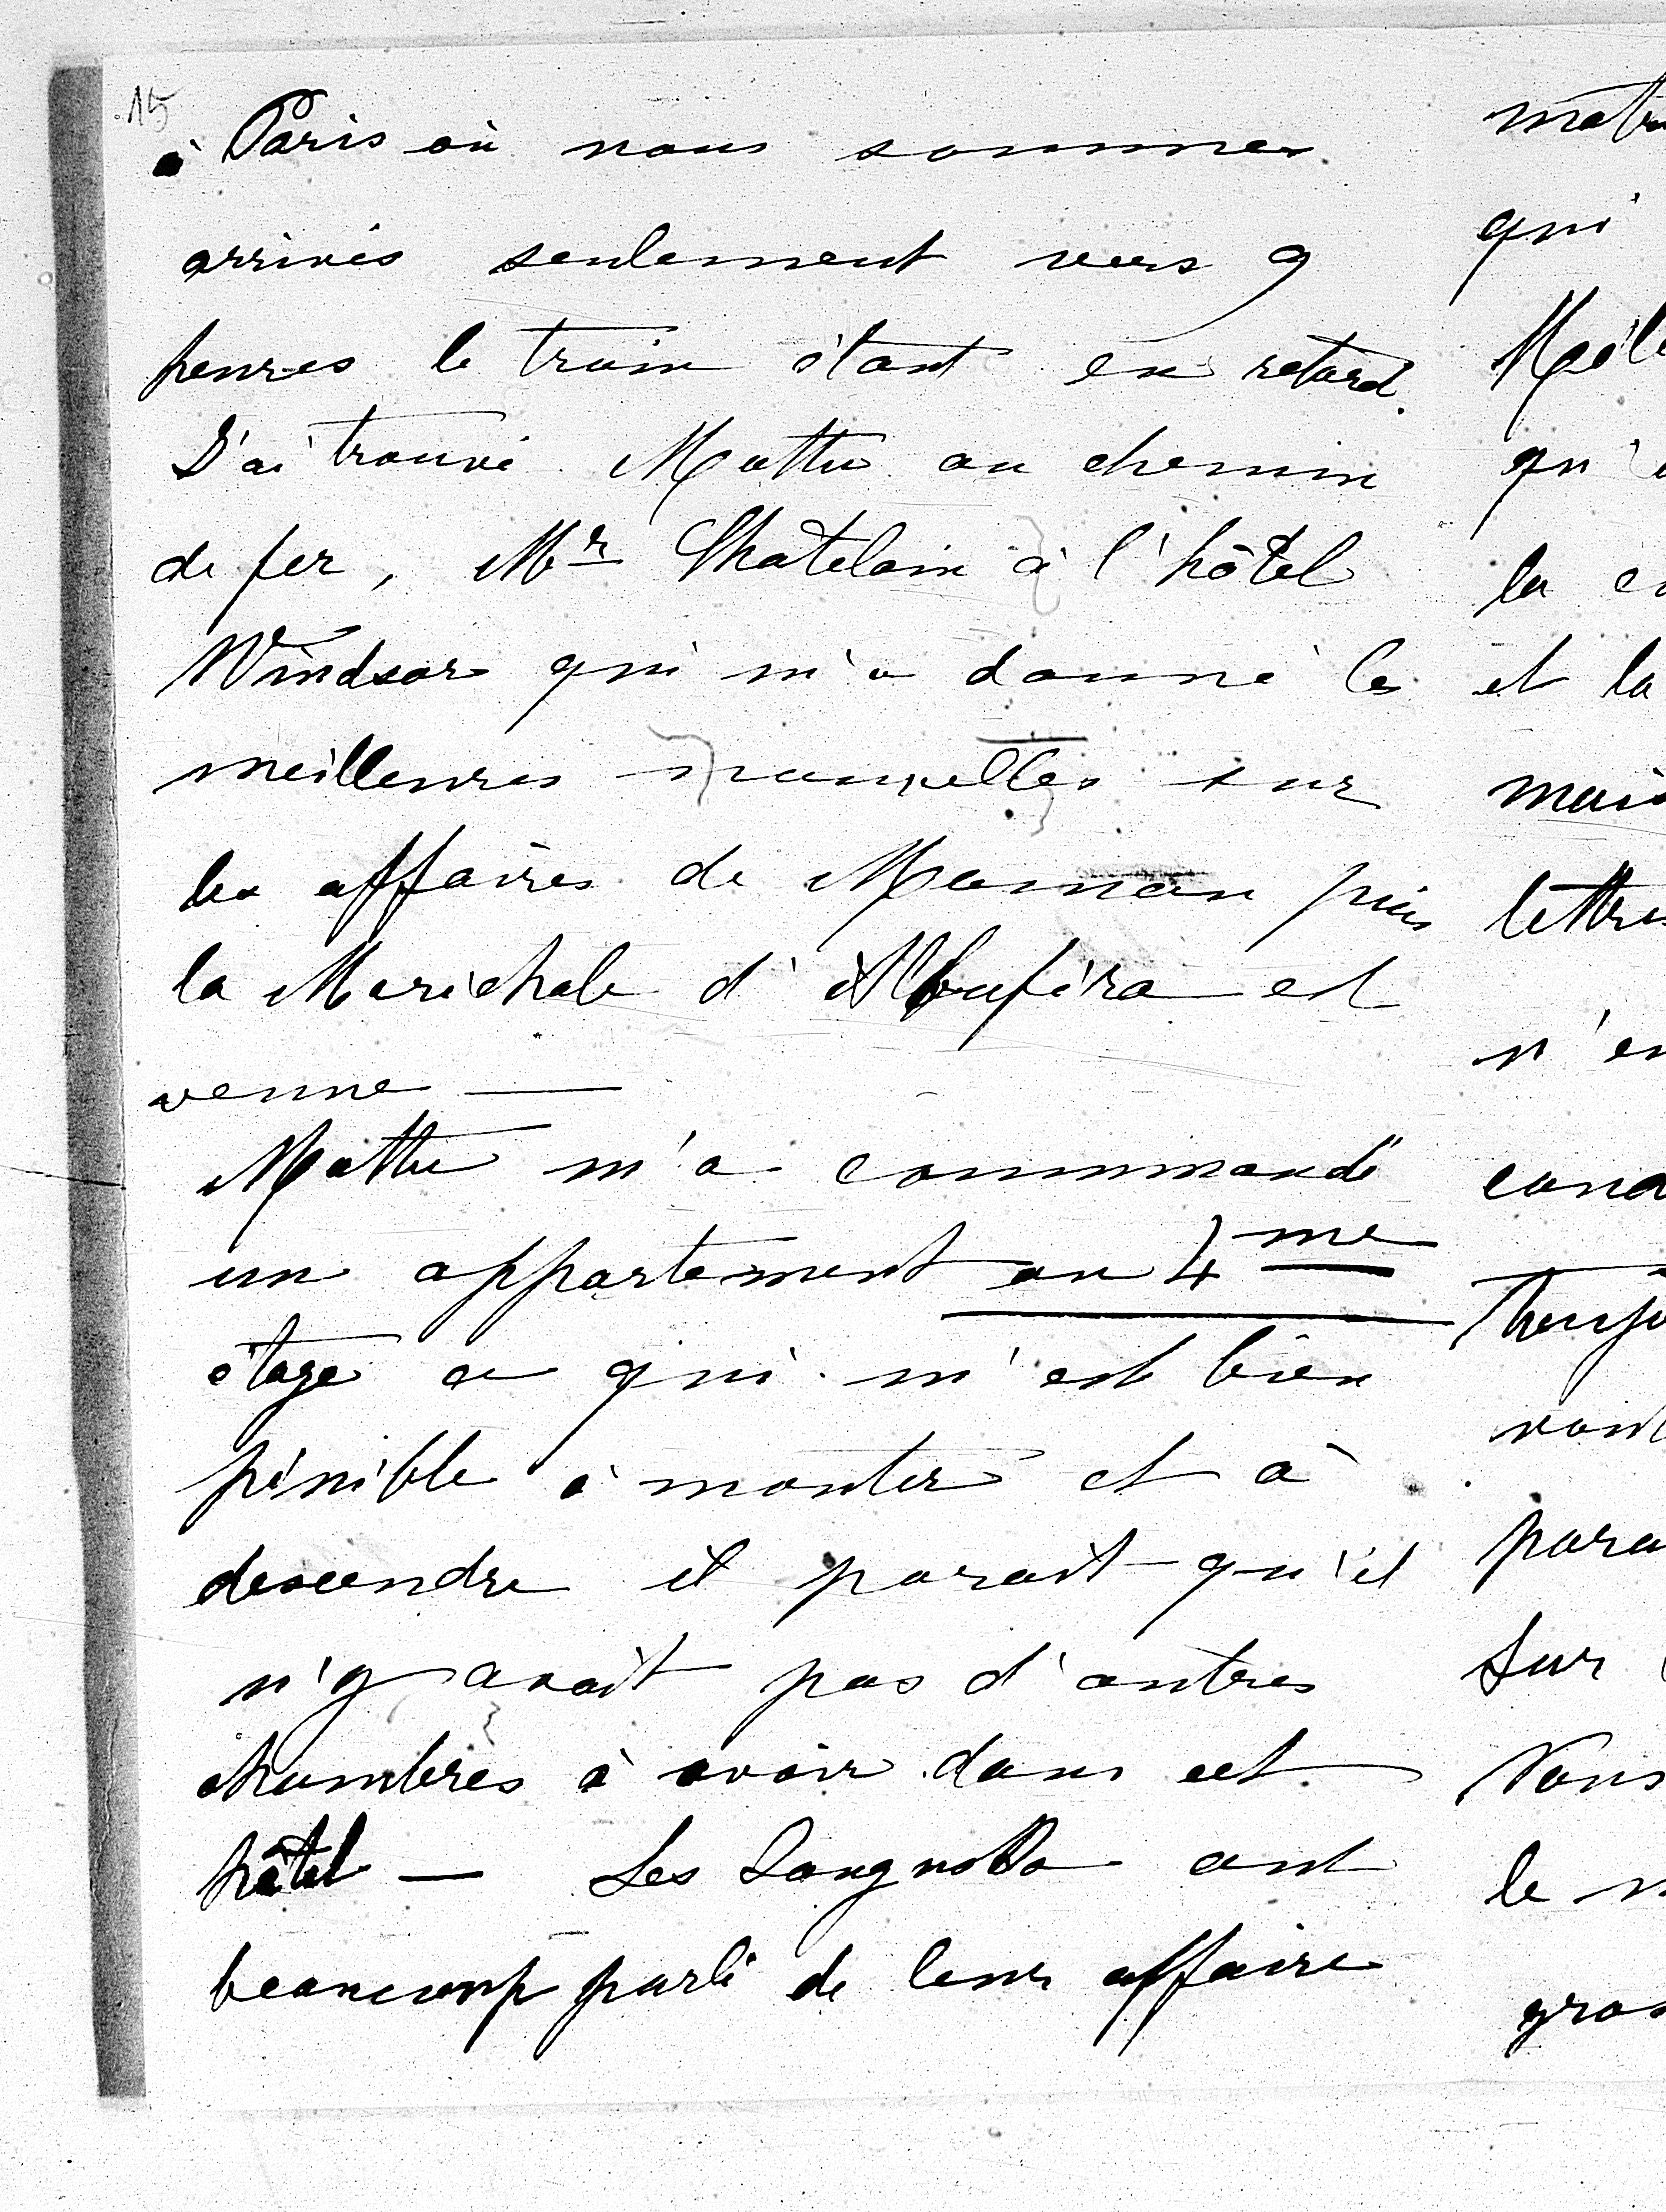 15
à Paris où nous sommes
arrivés seulement vers 9
heures le train étant en retard.
J'ai trouvé Mattu au chemin
de fer, Mr Chatelain à l'hôtel
Windsor qui m'a donné les
meilleures nouvelles sur
les affaires de Maman puis
la Maréchale d'Albuféra est
venue —
Mattu m'a commandé
un appartement au 4me
étage ce qui m'est bien
pénible à monter et à
descendre il parait qu'il
n'y avait pas d'autres
chambres à avoir dans cet
hôtel — Les
ont
beaucoup parlé de leur affaire
qui
la
et la
mais
n'en
sur
Vous
le